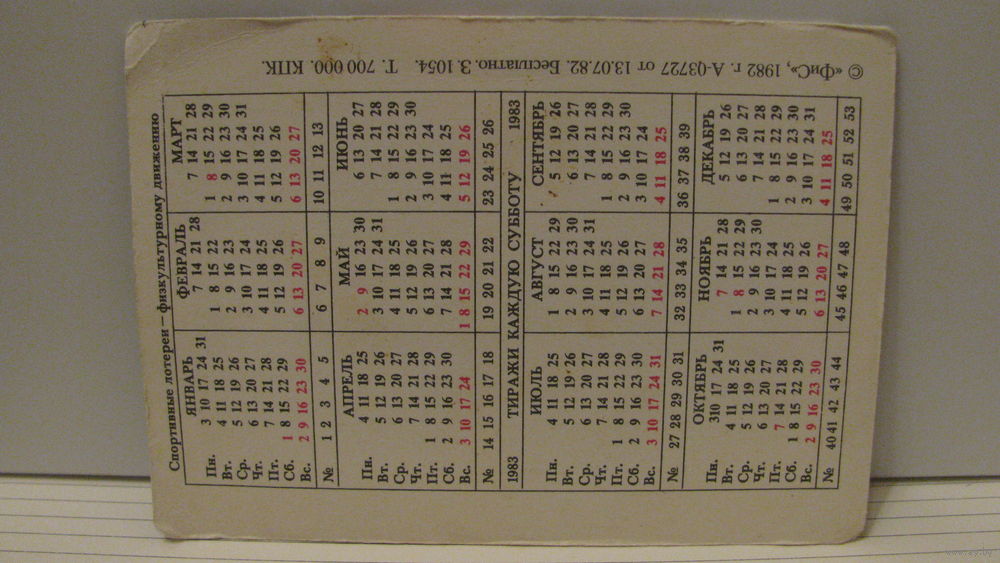 Спортивные лотереи — физкультурному движению
ЯНВАРЬ ФЕВРАЛЬ МАРТ
Пн. 3 10 17 24 31 7 14 21 28 7 14 21 28
Вт. 4 11 18 25 1 8 15 22 1 8 15 22 29
Ср. 5 12 19 26 2 9 16 23 2 9 16 23 30
Чт. 6 13 20 27 3 10 17 24 3 10 17 24 31
Пт. 7 14 21 28 4 11 18 25 4 11 18 25
Сб. 1 8 15 22 29 5 12 19 26 5 12 19 26
Вс. 2 9 16 23 30 6 13 20 27 6 13 20 27
№ 1 2 3 4 5 6 7 8 9 10 11 12 13
АПРЕЛЬ МАЙ ИЮНЬ
Пн. 4 11 18 25 2 9 16 23 30 6 13 20 27
Вт. 5 12 19 26 3 10 17 24 31 7 14 21 28
Ср. 6 13 20 27 4 11 18 25 1 8 15 22 29
Чт. 7 14 21 28 5 12 19 26 2 9 16 23 30
Пт. 1 8 15 22 29 6 13 20 27 3 10 17 24
Сб. 2 9 16 23 30 7 14 21 28 4 11 18 25
Вс. 3 10 17 24 1 8 15 22 29 5 12 19 26
№ 14 15 16 17 18 19 20 21 22 23 24 25 26
1983 ТИРАЖИ КАЖДУЮ СУББОТУ 1983
ИЮЛЬ АВГУСТ СЕНТЯБРЬ
Пн. 4 11 18 25 1 8 15 22 29 5 12 19 26
Вт. 5 12 19 26 2 9 16 23 30 6 13 20 27
Ср. 6 13 20 27 3 10 17 24 31 7 14 21 28
Чт. 7 14 21 28 4 11 18 25 1 8 15 22 29
Пт. 1 8 15 22 29 5 12 19 26 2 9 16 23 30
Сб. 2 9 16 23 30 6 13 20 27 3 10 17 24
Вс. 3 10 17 24 31 7 14 21 28 4 11 18 25
№ 27 28 29 30 31 32 33 34 35 36 37 38 39
ОКТЯБРЬ НОЯБРЬ ДЕКАБРЬ
Пн. 310 17 24 31 7 14 21 28 5 12 19 26
Вт. 4 11 18 25 1 8 15 22 29 6 13 20 27
Ср. 5 12 19 26 2 9 16 23 30 7 14 21 28
Чт. 6 13 20 27 3 10 17 24 1 8 15 22 29
Пт. 7 14 21 28 4 11 18 25 2 9 16 23 30
Сб. 1 8 15 22 29 5 12 19 26 3 10 17 24 31
Вс. 2 9 16 23 30 6 13 20 27 4 11 18 25
№ 40 41 42 43 44 45 46 47 48 49 50 51 52 53
© «ФиС», 1982 г. А-03727 от 13.07.82. Бесплатно. З. 1054. Т. 700 000. КПК.
www.ay.by